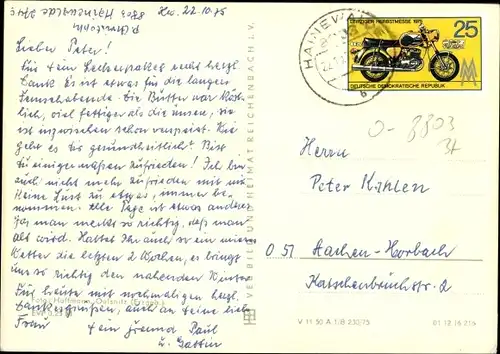 Hai. 22.10.75
Lieber Peter!
Für Dein Leckerpaket recht herzl.
Dank! Es ist etwas für die langen
Fernsehabende. Die Butter war köst-
lich, viel fettiger als die unsere, sie
ist inzwischen schon verspeist. Wie
geht es Dir gesundheitlich? Bist
Du einigermaßen zufrieden! Ich bin
auch nicht mehr zufrieden mit mir
Keine Lust zu etwas, immer be-
nommen. Alle Tage ist etwas anderes
Man merkt so richtig, daß man
alt wird. Hattet Ihr auch so ein mieses
Wetter die letzten 2 Wochen, es bringt
uns so richtig den nahenden Winter
Für heute mit nochmaligen herzl.
Dankesgrüßen, auch an Deine liebe
Frau Dein Freund Paul
u. Gattin
Foto: Hoffmann, Oelsnitz (Erzgeb.)
VERLAG BILD UND HEIMAT REICHENBACH I. V.
LEIPZIGER HERBSTMESSE 1975
25
MM
DEUTSCHE DEMOKRATISCHE REPUBLIK
HAINEWALDE
b
O-8803
Herrn
Peter Kahlen
O 51 Aachen-Horbach
V 11 50 A 1/B 230/75
01 12 16 215